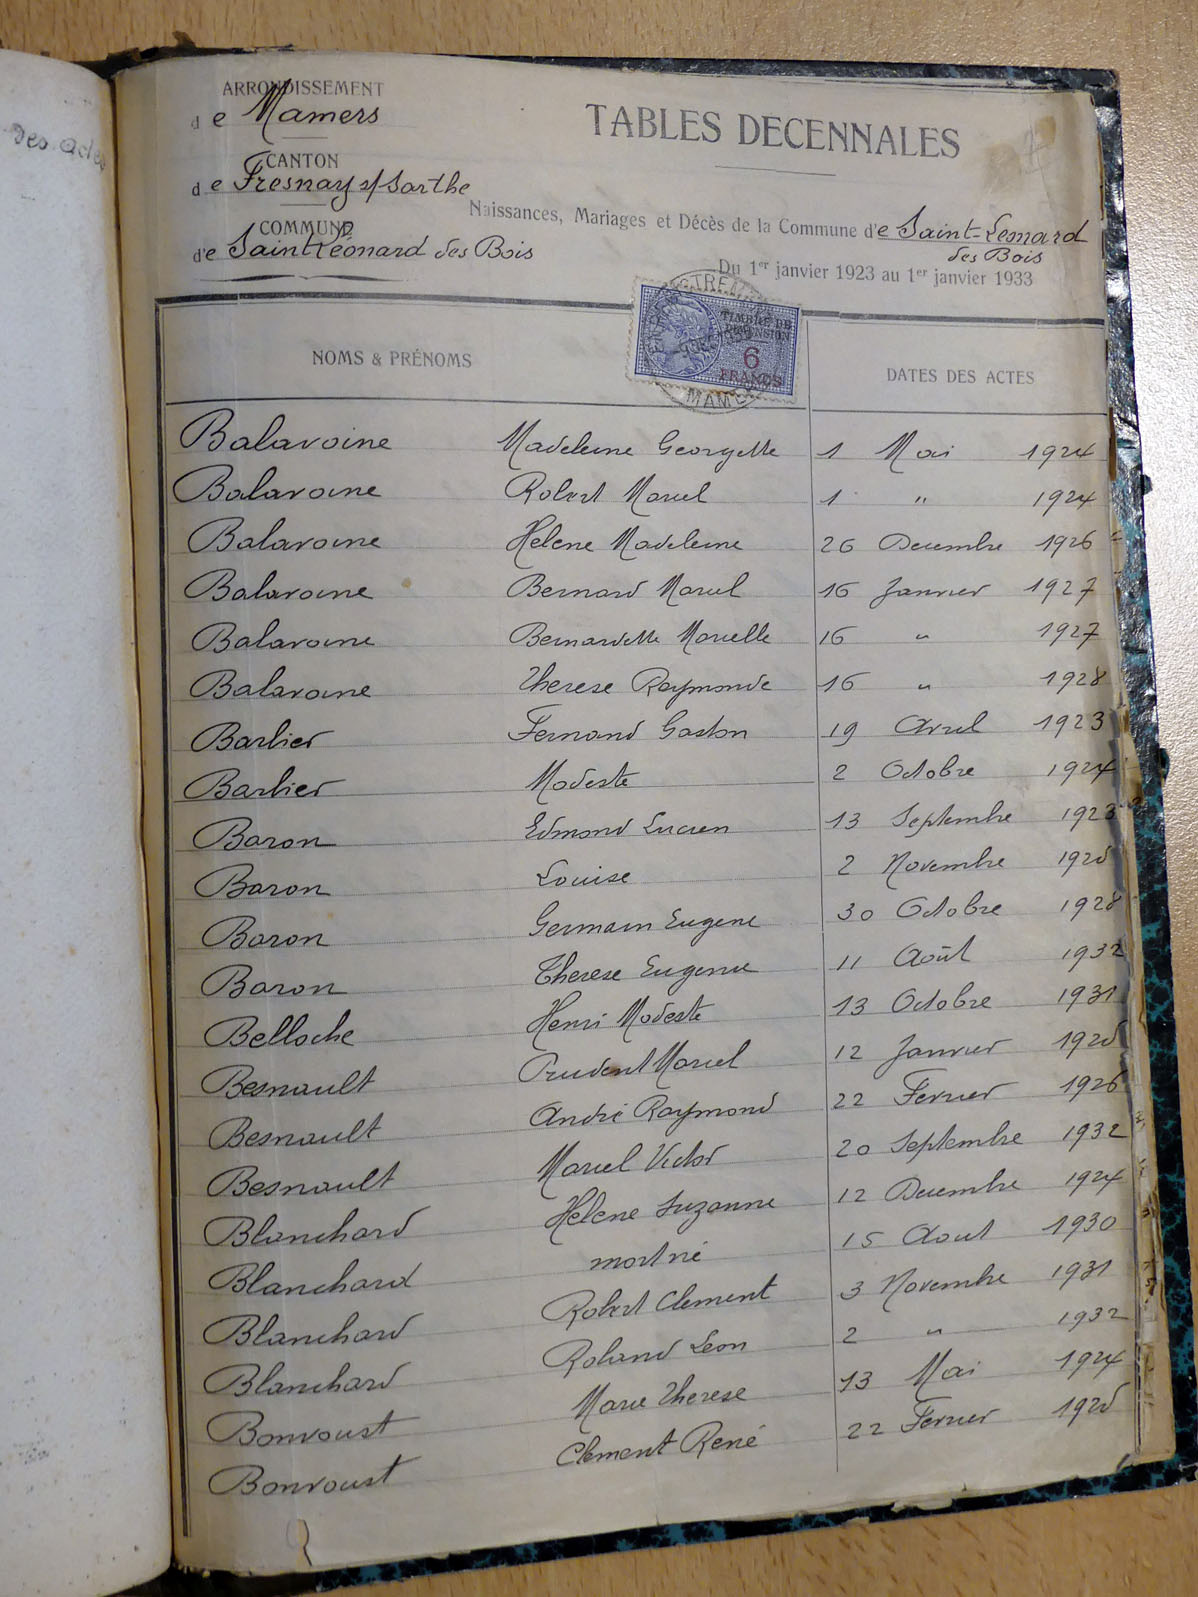 des actes
ARRONDISSEMENT
de Mamers
CANTON
de Fresnay s/Sarthe
COMMUNE
d'e Saint Léonard des Bois
TABLES DECENNALES
Naissances, Mariages et Décès de la Commune d'e Saint-Leonard
des Bois
Du 1er janvier 1923 au 1er janvier 1933
TIMBRE DE
DIMENSION
6
FRANCS
MAMERS
NOMS & PRÉNOMS DATES DES ACTES
Balavoine Madeleine Georgette 1 Mai 1924
Balavoine Robert Marcel 1 " 1924
Balavoine Helene Madeleine 26 Decembre 1926
Balavoine Bernard Marcel 16 Janvier 1927
Balavoine Bernardette Marcelle 16 " 1927
Balavoine Therese Raymonde 16 " 1928
Barbier Fernand Gaston 19 Avril 1923
Barbier Modeste 2 Octobre 1924
Baron Edmond Lucien 13 Septembre 1923
Baron Louise 2 Novembre 1925
Baron Germain Eugene 30 Octobre 1928
Baron Therese Eugenie 11 Août 1932
Belloche Henri Modeste 13 Octobre 1931
Besnault Prudent Marcel 12 Janvier 1925
Besnault André Raymond 22 Fevrier 1926
Besnault Marcel Victor 20 Septembre 1932
Blanchard Helene Suzanne 12 Decembre 1924
Blanchard mort né 15 Aout 1930
Blanchard Robert Clement 3 Novembre 1931
Blanchard Roland Leon 2 " 1932
Bonvoust Marie Therese 13 Mai 1924
Bonvoust Clement René 22 Fevrier 1925